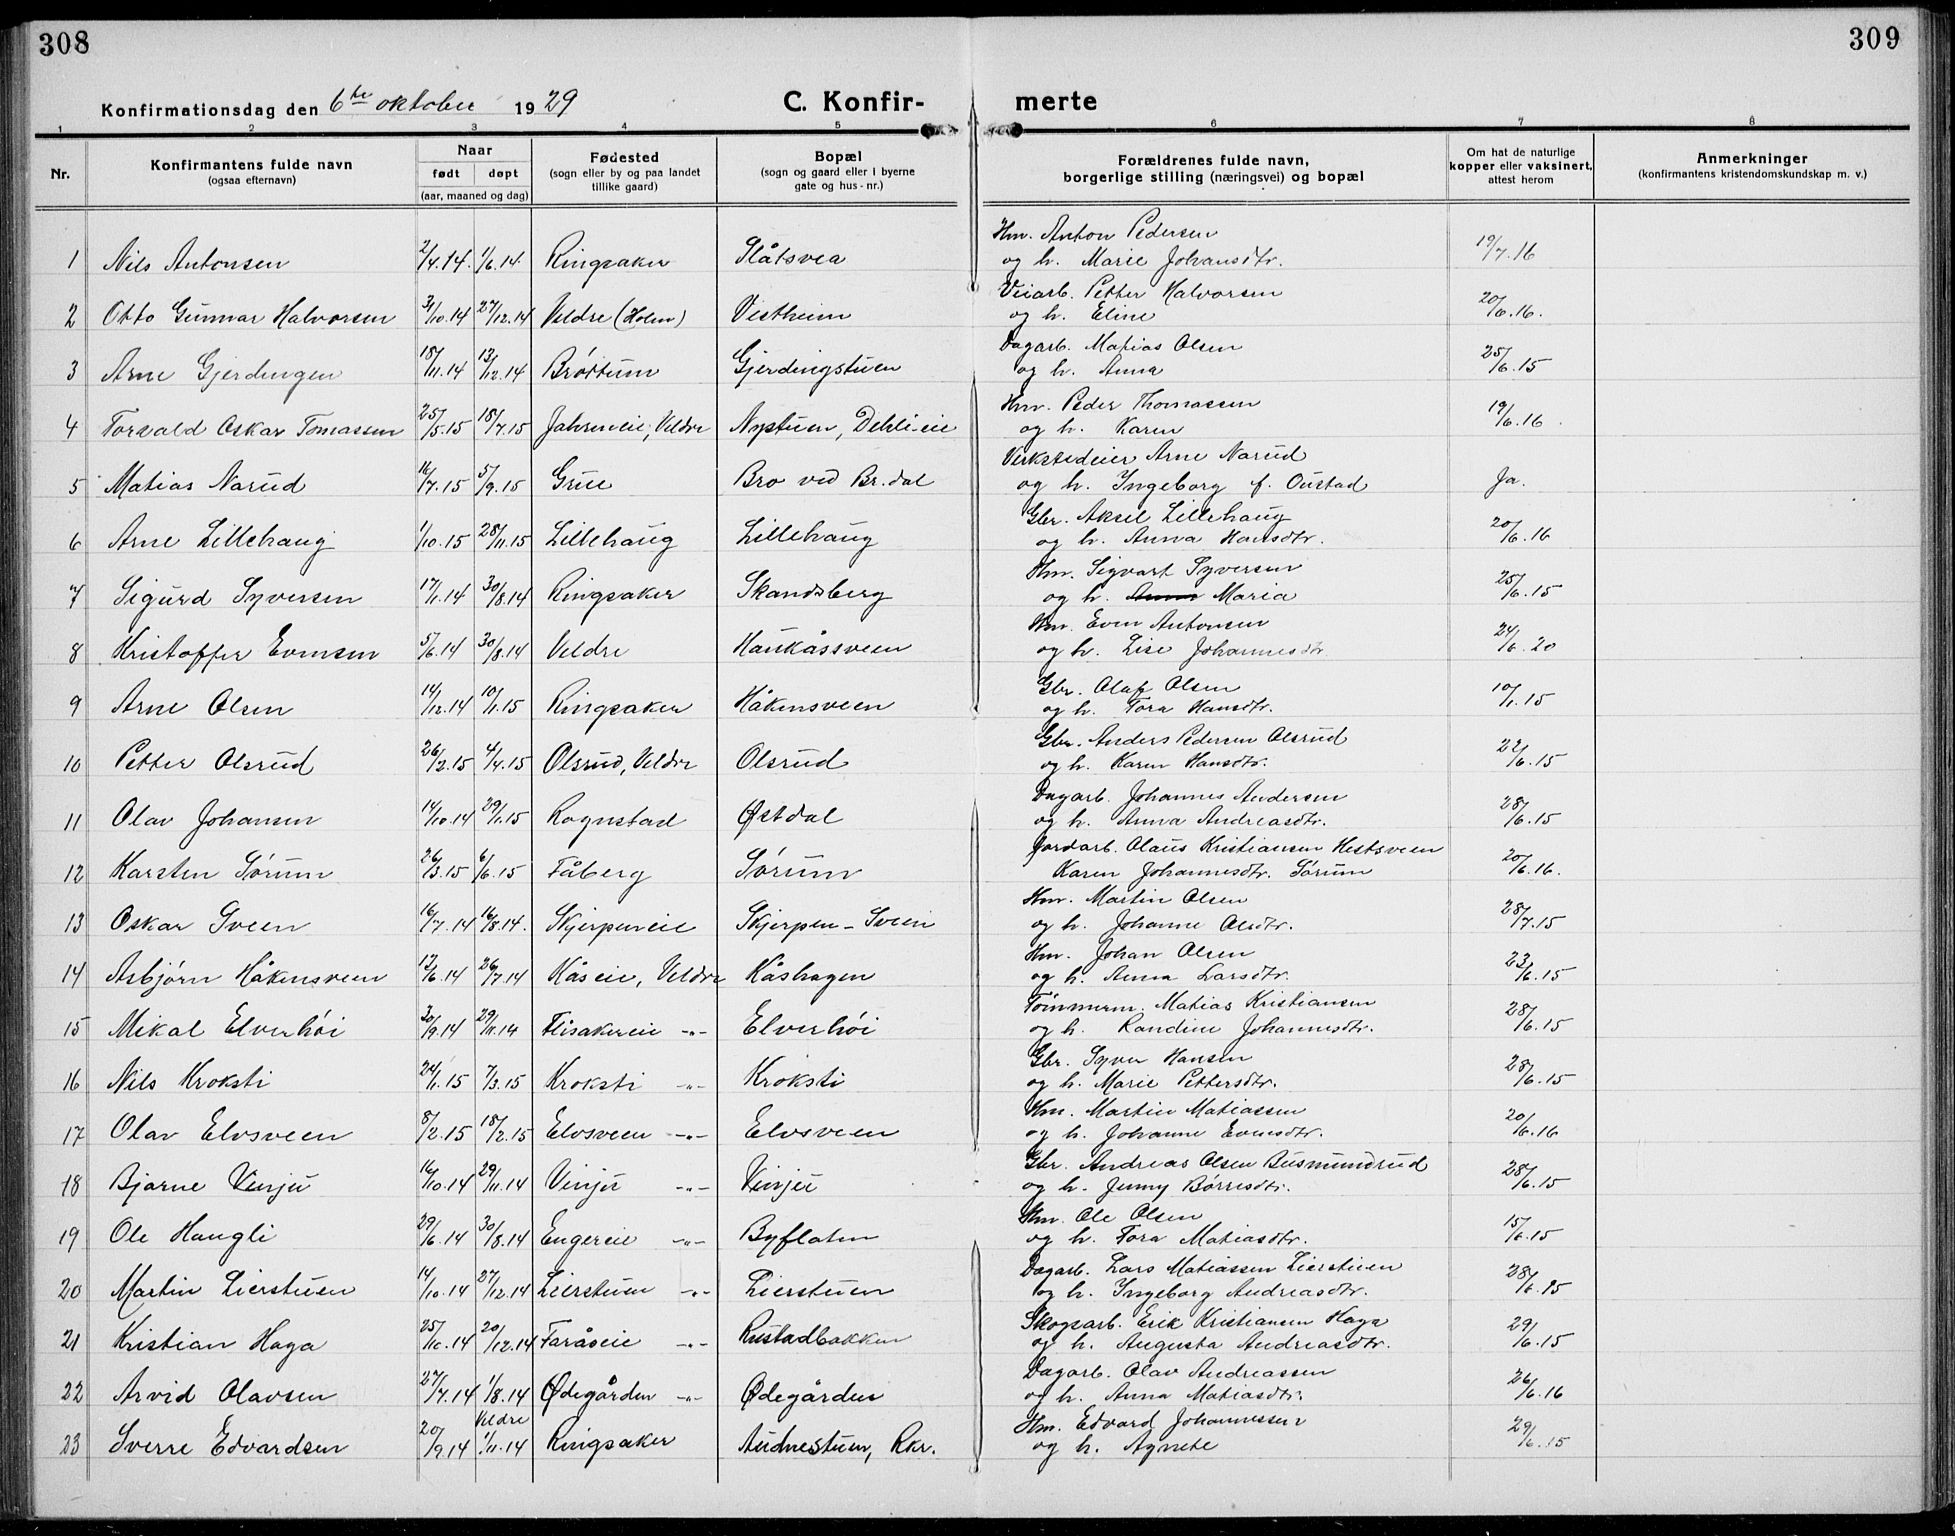 308
309
Konfirmationsdag den 6te oktober 1929
C. Konfir- merte
1 2 3 4 5 6 7 8
Nr. | Konfirmantens fulde navn (ogsaa efternavn) | Naar født døpt (aar, maaned og dag) | Fødested (sogn eller by og paa landet tillike gaard) | Bopæl (sogn og gaard eller i byerne gate og hus-nr.) | Forældrenes fulde navn, borgerlige stilling (næringsvei) og bopæl | Om hat de naturlige kopper eller vaksinert, attest herom | Anmerkninger (konfirmantens kristendomskundskap m. v.)
1 Nils Antonsen 2/4.14. 1/6.14. Ringsaker Slåtsvea Hm. Anton Pedersen
og h. Marie Johansdtr. 19/7.16
2 Otto Gunnar Halvorsen 31/10.14 27/12.14 Veldre (Holm) Vestheim Veiarb. Petter Halvorsen
og h. Eline 20/6.16.
3 Arne Gjerdingen 18/11.14 13/12.14 Brøttum Gjerdingstuen Dagarb. Matias Olsen
og h. Anna 25/6.15
4 Torvald Oskar Tomassen 25/5.15 18/7.15 Jahreneie, Veldre Nystuen, Dehli-eie Hm. Peder Thomassen
og h. Karen 19/6.16.
5 Matias Narud 16/7.15 5/9.15 Grue Bro ved Br.dal Verkstedeier Arne Narud
og h. Ingeborg f. Oustad Ja.
6 Arne Lillehaug 1/10.15 28/11.15 Lillehaug Lillehaug Gbr. Aksel Lillehaug
og h. Anna Hansdtr. 20/6.16
7 Sigurd Syversen 17/1.14 30/8.14 Ringsaker Skandsberg Hm. Sigvart Syversen
og h. Anna Maria 25/6.15
8 Kristoffer Evensen 5/6.14 30/8.14 Veldre Haukåssveen Hm. Even Antonsen
og h. Lise Johannesdtr. 24/6.20
9 Arne Olsen 14/12.14 10/1.15 Ringsaker Håkensveen Gbr. Olaf Olsen
og h. Tora Hansdtr. 10/1.15
10 Petter Olsrud 26/2.15 4/4.15 Olsrud, Veldre Olsrud Gbr. Anders Pedersen Olsrud
og h. Karen Hansdtr. 22/6.15
11 Olav Johansen 14/10.14 29/1.15 Rognstad Østdal Dagarb. Johannes Andersen
og h. Anna Andreasdtr. 28/6.15
12 Karsten Sørum 26/3.15 6/6.15 Fåberg Sørum Jordarb. Olaus Kristiansen Hestsveen
Karen Johannesdtr. Sørum 20/6.16.
13 Oskar Sveen 16/7.14 16/8.14. Skjerpeneie Skjerpen-Sveen Hm. Martin Olsen
og h. Johanne Olsdtr. 28/7.15
14 Asbjørn Håkensveen 12/6.14 26/7.14 Kåseie, Veldre Kåshagen Hm. Johan Olsen
og h. Anna Larsdtr. 23/6.15
15 Mikal Elverhöi 30/9.14 29/11.14 Flisakereie -"- Elverhöi Tömmerm. Matias Kristiansen
og h. Randine Johannesdtr. 28/6.15
16 Nils Kroksti 24/1.15 7/3.15 Kroksti -"- Kroksti Gbr. Syver Hansen
og h. Marie Pettersdtr. 28/6.15
17 Olav Elvsveen 8/2.15 18/2.15 Elvsveen -"- Elvsveen Hm. Martin Matiassen
og h. Johanne Evensdtr. 20/6.16
18 Bjarne Vinju 16/10.14 29/11.14 Vinju -"- Vinju Gbr. Andreas Olsen Busmundrud
og h. Jenny Børresdtr. 28/6.15
19 Ole Haugli 29/6.14 30/8.14 Engereie -"- Byflaten Hm. Ole Olsen
og h. Tora Matiasdtr. 15/6.15
20 Martin Lierstuen 14/10.14 27/12.14 Lierstuen -"- Lierstuen Dagarb. Lars Matiassen Lierstuen
og h. Ingeborg Andreasdtr. 28/6.15
21 Kristian Haga 25/10.14 20/12.14 Faråseie -"- Rustadbakken Skogsarb. Erik Kristiansen Haga
og h. Augusta Andreasdtr. 29/6.15
22 Arvid Olavsen 27/7.14 1/8.14 Ødegården -"- Ødegården Dagarb. Olav Andreassen
og h. Anna Matiasdtr. 26/6.16
23 Sverre Edvardsen 20/9.14 Veldre 1/11.14 Ringsaker Audnestuen, Rkr. Hm. Edvard Johannessen
og h. Agnete 29/6.15